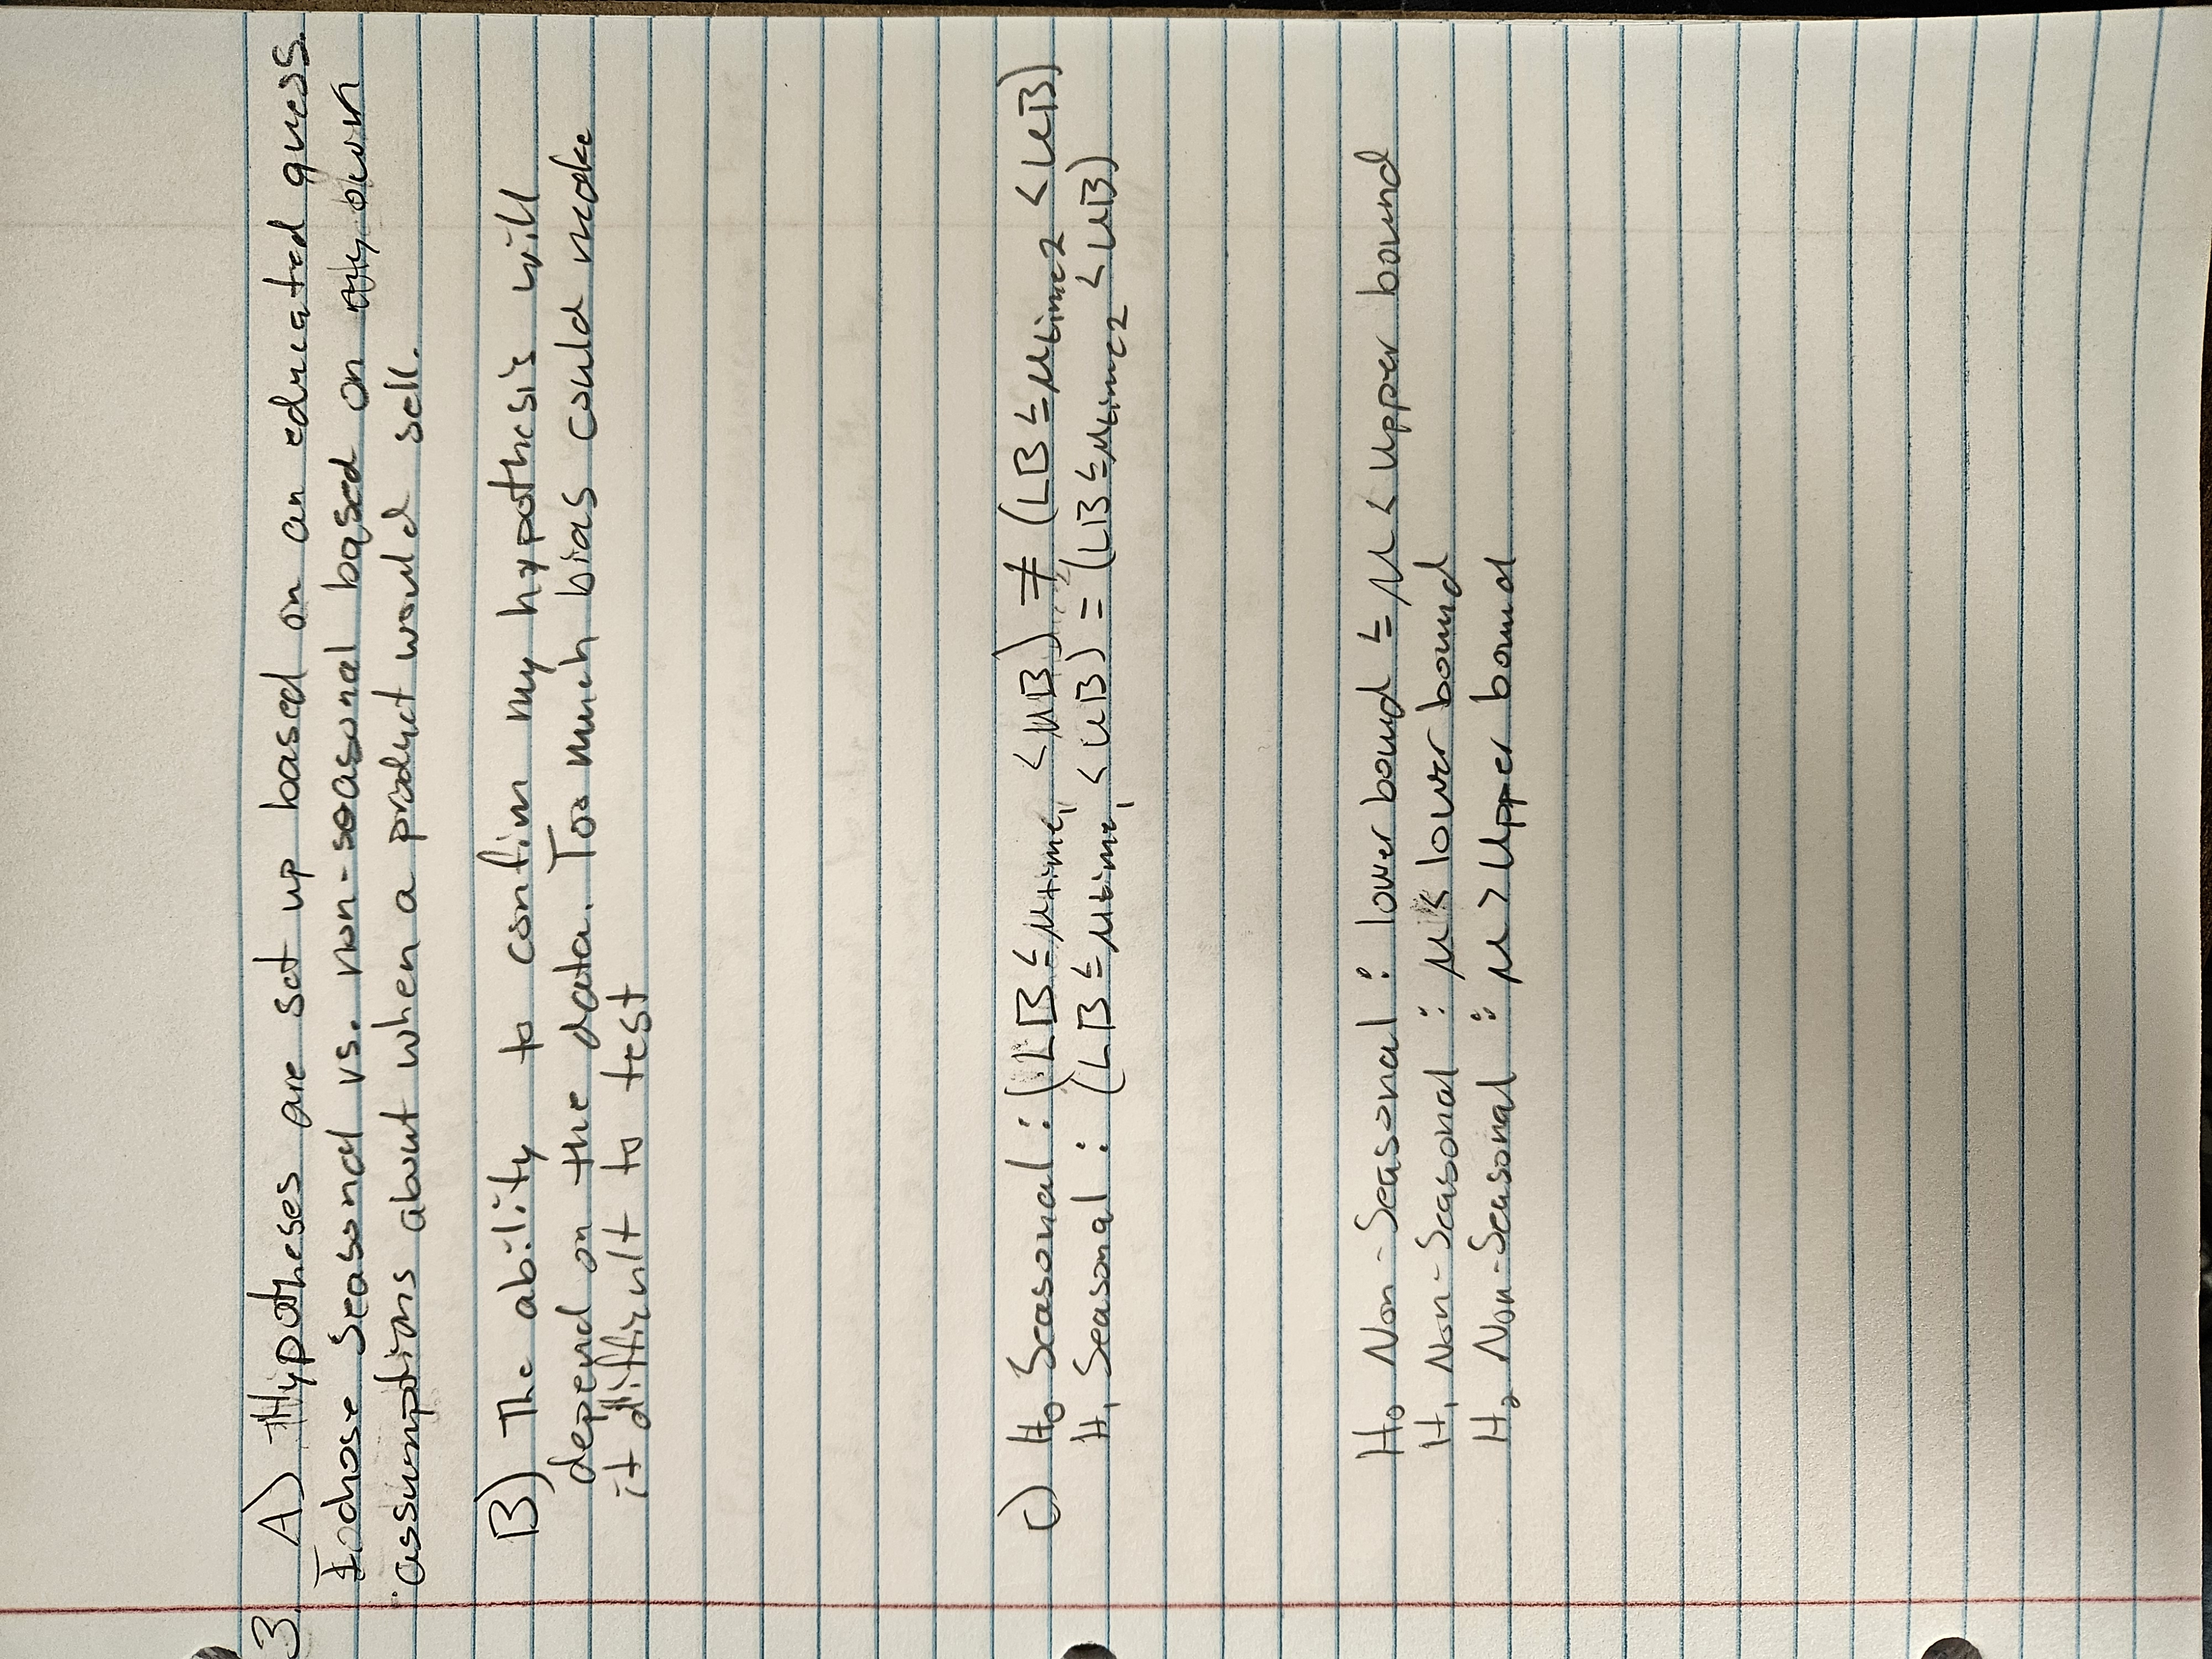 3. A) Hypotheses are set up based on an educated guess.
I chose seasonal vs. non-seasonal based on my own
assumptions about when a product would sell.
B) The ability to confim my hypothesis will
depend on the data. Too much bias could make
it difficult to test
C) H₀ Seasonal : (LB ≤ μtime₁ < UB) ≠ (LB ≤ μtime2 < UB)
H₁ Seasonal : (LB ≤ μtime₁ < UB) = (LB ≤ μtime2 < UB)
H₀ Non-Seasonal : lower bound ≤ μ < Upper bound
H₁ Non-Seasonal : μ < lower bound
H₂ Non-Seasonal : μ > Upper bound